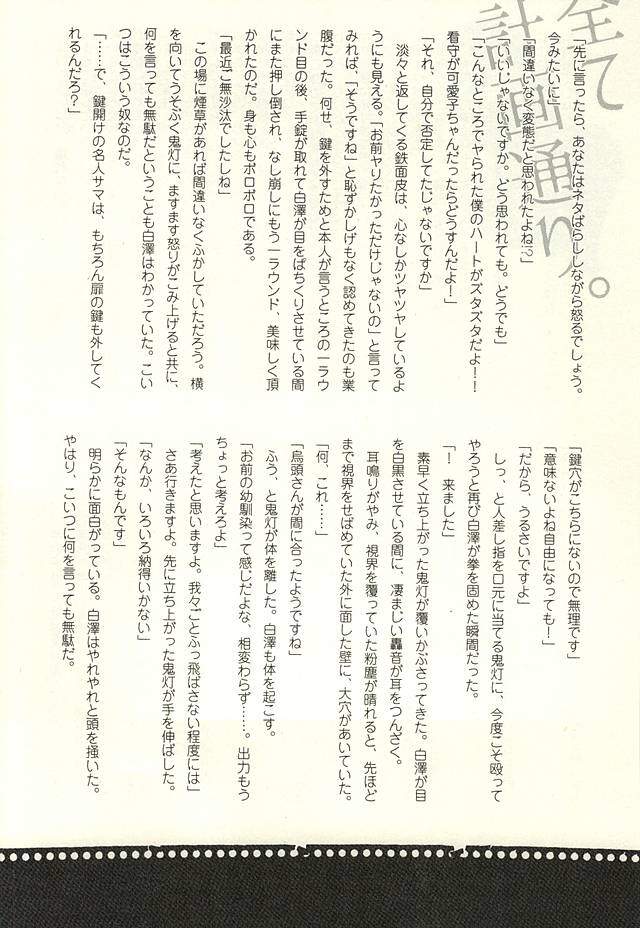 全て
計画通り。
「先に言ったら、あなたはネタばらししながら怒るでしょう。
今みたいに」
「間違いなく変態だと思われたよね!?」
「いいじゃないですか。どう思われても。どうでも」
「こんなところでヤられた僕のハートがズタズタだよ！！
看守が可愛子ちゃんだったらどうすんだよ！」
「それ、自分で否定してたじゃないですか」
淡々と返してくる鉄面皮は、心なしかツヤツヤしているよ
うにも見える。「お前ヤりたかっただけじゃないの」と言って
みれば、「そうですね」と恥ずかしげもなく認めてきたのも業
腹だった。何せ、鍵を外すためと本人が言うところの一ラウ
ンド目の後、手錠が取れて白澤が目をぱちくりさせている間
にまた押し倒され、なし崩しにもう一ラウンド、美味しく頂
かれたのだ。身も心もボロボロである。
「最近ご無沙汰でしたしね」
この場に煙草があれば間違いなくふかしていただろう。横
を向いてうそぶく鬼灯に、ますます怒りがこみ上げると共に、
何を言っても無駄だということも白澤はわかっていた。こい
つはこういう奴なのだ。
「……で、鍵開けの名人サマは、もちろん扉の鍵も外してく
れるんだろ？」
「鍵穴がこちらにないので無理です」
「意味ないよね自由になっても！」
「だから、うるさいですよ」
しっ、と人差し指を口元に当てる鬼灯に、今度こそ殴って
やろうと再び白澤が拳を固めた瞬間だった。
「！　来ました」
素早く立ち上がった鬼灯が覆いかぶさってきた。白澤が目
を白黒させている間に、凄まじい轟音が耳をつんざく。
耳鳴りがやみ、視界を覆っていた粉塵が晴れると、先ほど
まで視界をせばめていた外に面した壁に、大穴があいていた。
「何、これ……」
「烏頭さんが間に合ったようですね」
ふう、と鬼灯が体を離した。白澤も体を起こす。
「お前の幼馴染って感じだよな、相変わらず……。出力もう
ちょっと考えろよ」
「考えたと思いますよ。我々ごとふっ飛ばさない程度には」
さあ行きますよ。先に立ち上がった鬼灯が手を伸ばした。
「なんか、いろいろ納得いかない」
「そんなもんです」
明らかに面白がっている。白澤はやれやれと頭を掻いた。
やはり、こいつに何を言っても無駄だ。